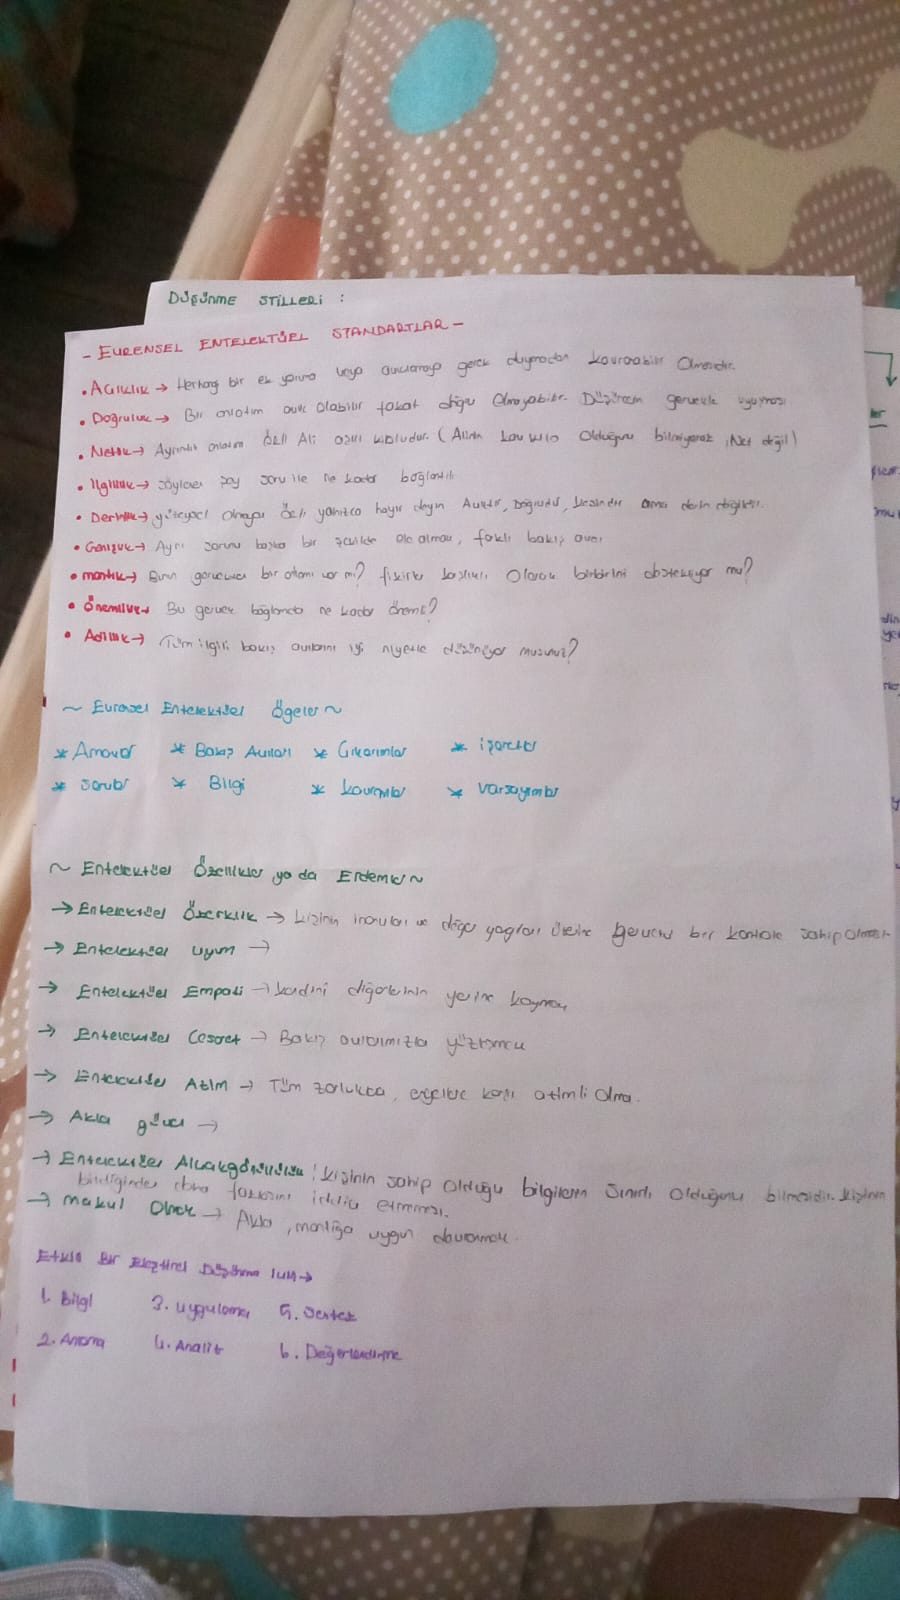 DÜŞÜNME STİLLERİ :
- EVRENSEL ENTELEKTÜEL STANDARTLAR -
• Açıklık → Herhangi bir ek yoruma veya gerek duymadan kavranabilir olmasıdır.
• Doğruluk → Bir anlatım açık olabilir fakat doğru olmayabilir. Düşüncenin gerçekle uyuşması
• Netlik → Ayrıntılı anlatım Ali aşırı kiloludur. (Alinin kaç kilo olduğunu bilmiyoruz, Net değil)
• İlgililik → söylenen şey soru ile ne kadar bağlantılı
• Derinlik → yüzeysel olmayan hayır deyin Açıktır, Doğrudur, kesindir ama derin değildir.
• Genişlik → Aynı sorunu başka bir şekilde ele alması, farklı bakış açısı
• mantık → Bunun gerçekten bir anlamı var mı? fikirler karşılıklı olarak birbirini destekliyor mu?
• Önemlilik → Bu gerçek bağlamda ne kadar önemli?
• Adillik → Tüm ilgili bakış açılarını iyi niyetle düşünüyor musunuz?
~ Evrensel Entelektüel Ögeler ~
* Amaçlar * Bakış Açıları * Çıkarımlar * işaretler
* sorular * Bilgi * kavramlar * varsayımlar
~ Entelektüel Özellikler ya da Erdemler ~
→ Entelektüel Özerklik → kişinin inançları ve değer yargıları üzerine gerçekçi bir kontrole sahip olması
→ Entelektüel uyum →
→ Entelektüel Empati → kendini diğerlerinin yerine koymak
→ Entelektüel Cesaret → Bakış açılarımızla yüzleşmek
→ Entelektüel Azim → Tüm zorluklara, engellere karşı azimli olma.
→ Akla güven →
→ Entelektüel Alçakgönüllülük : kişinin sahip olduğu bilgilerin sınırlı olduğunu bilmesidir. kişinin
bildiğinden daha fazlasını iddia etmemesi.
→ makul olmak → Akla, mantığa uygun davranmak.
Etkili Bir Eleştirel Düşünme için →
1. Bilgi 3. uygulama 5. sentez
2. Anlama 4. Analiz 6. Değerlendirme